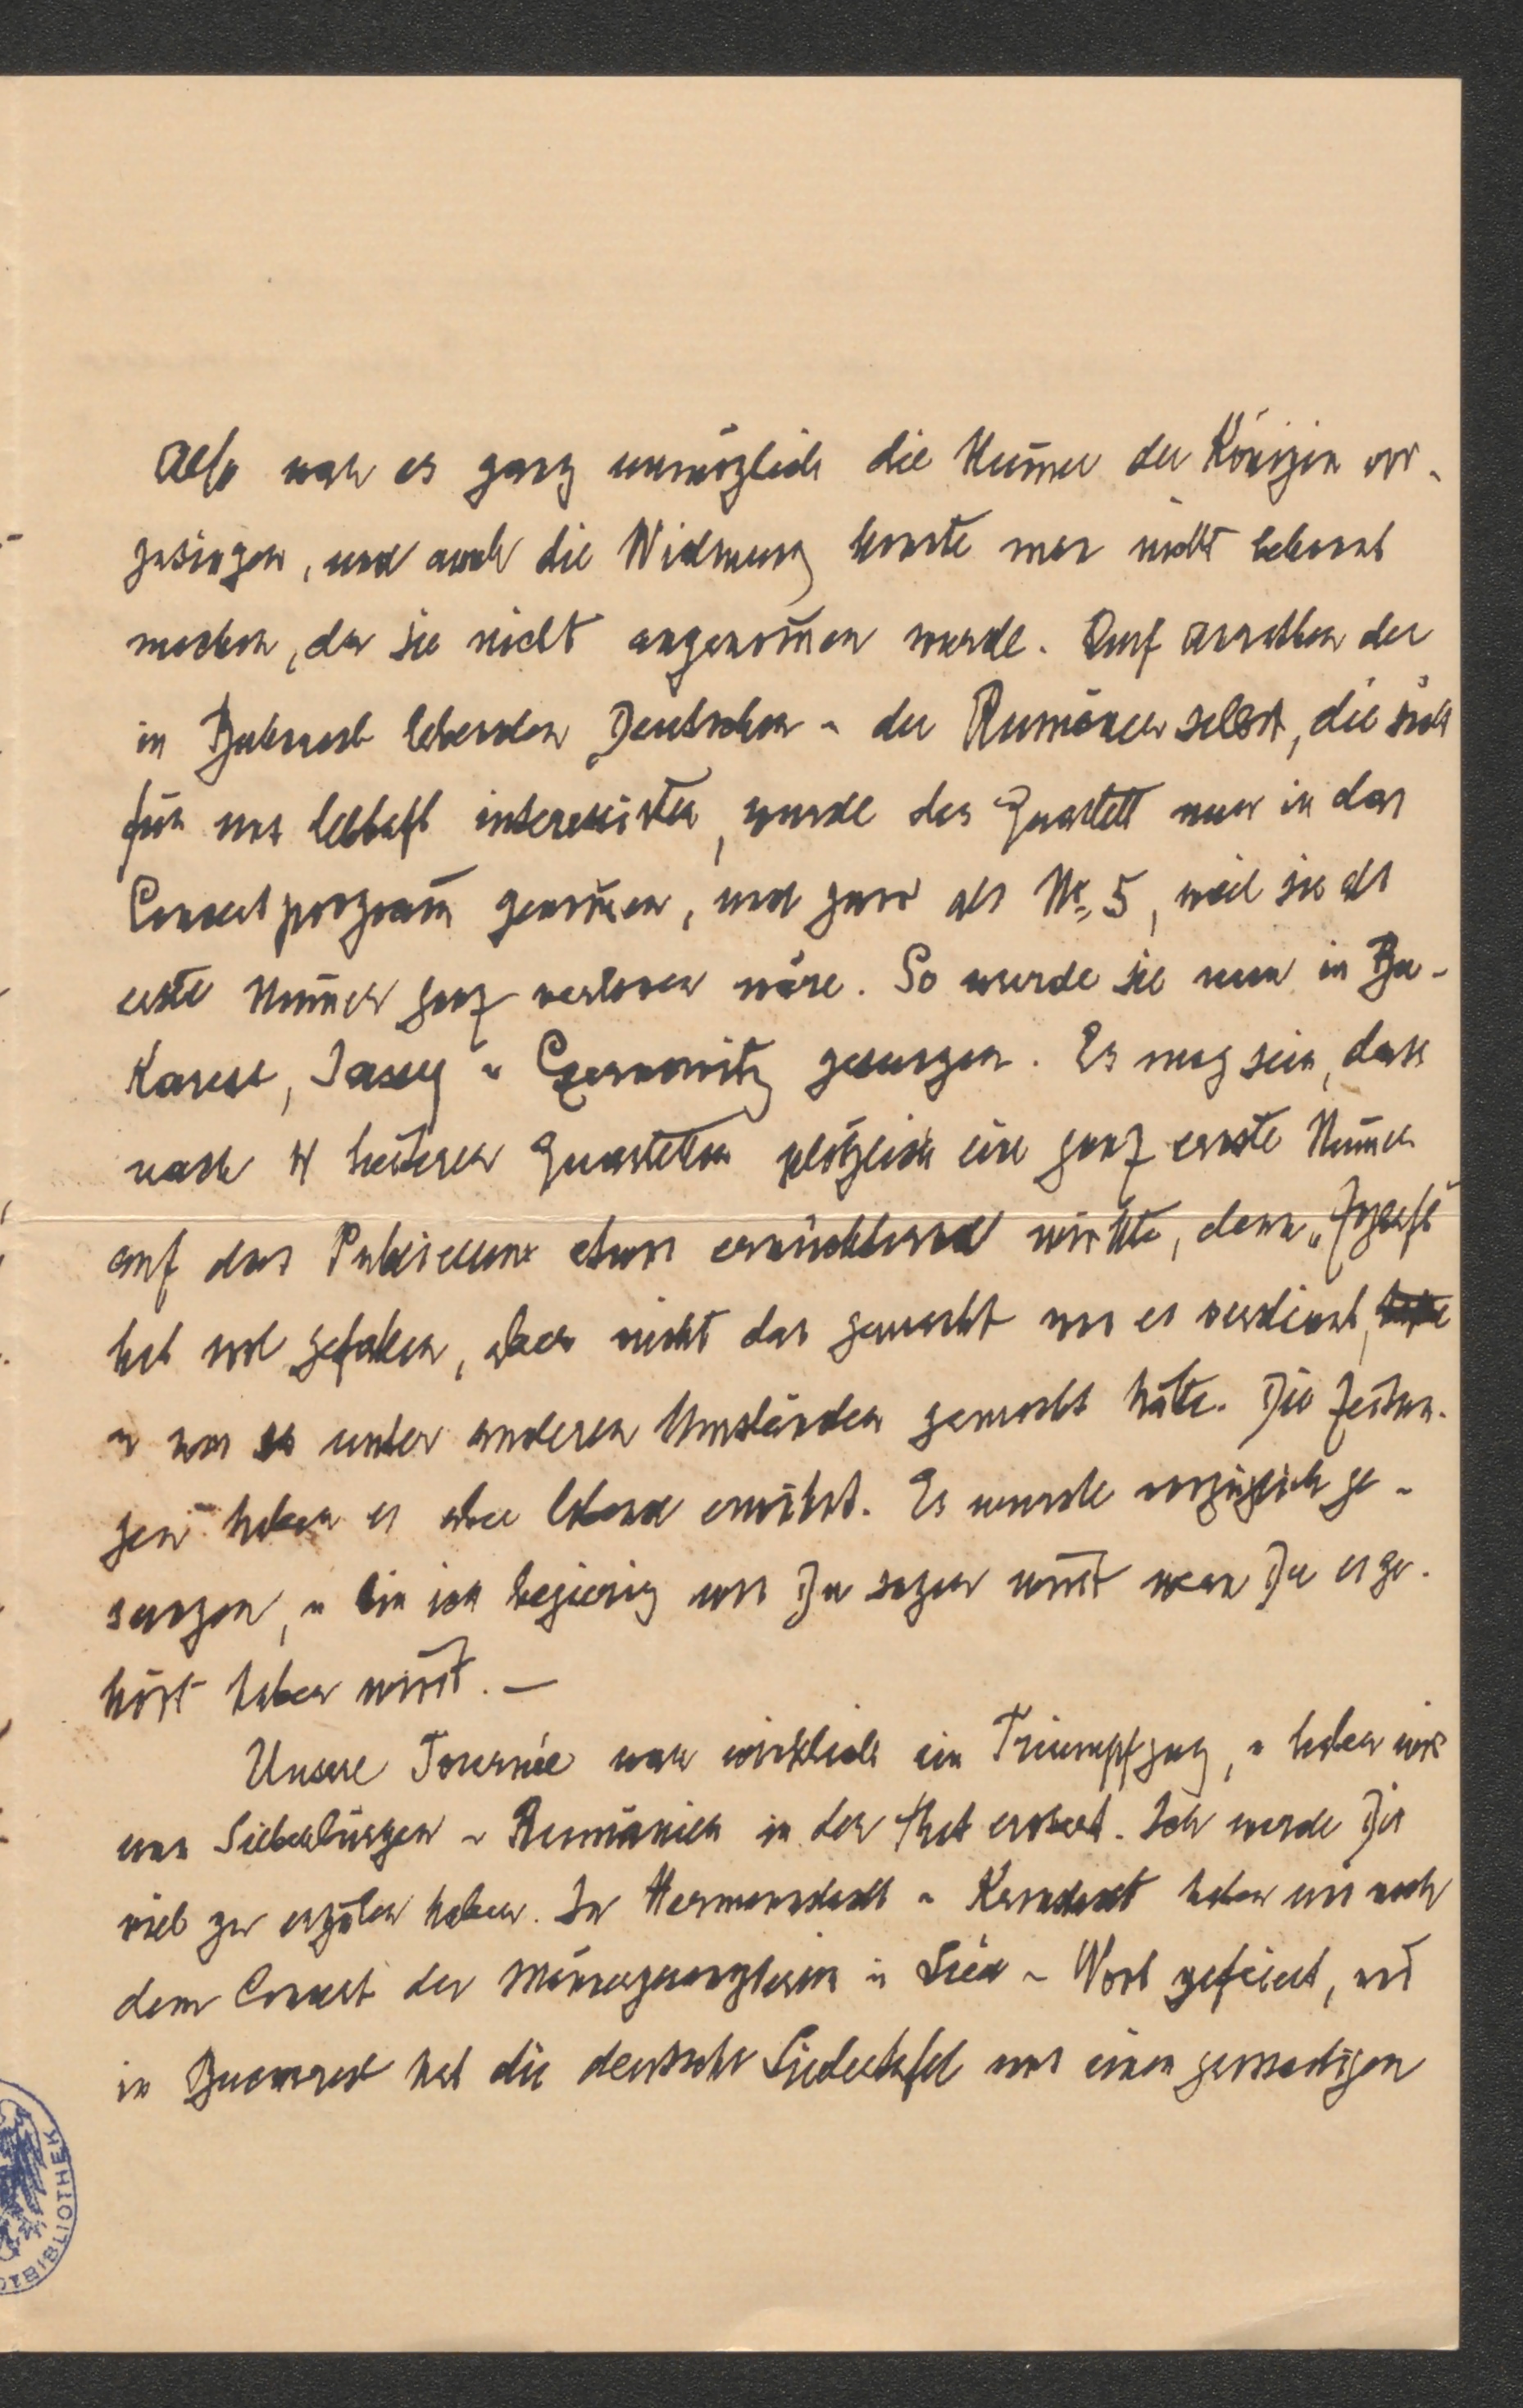 Also war es ganz unmöglich die Num̄er der Königin vor-
zusingen, und auch die Widmung konnte man nicht bekannt
machen, da sie nicht angenom̄en wurde. Auf anrathen der
in Bukarest lebenden Deutschen u der Rumänen selbst, die sich
für uns lebhaft interessirten, wurde das Quartett nun in das
Concertprogram̄ genom̄en, und zwar als Nr. 5, weil sie als
erste Num̄er ganz verloren wäre. So wurde sie nun in Bu-
karest, Jassy u Czernowitz gesungen. Es mag sein, dass
nach 4 heiteren Quartetten plötzlich eine ganz ernste Num̄er
auf das Publicum etwas ernüchternd wirkte, denn
hat wol gefallen, aber nicht das gemacht was es verdient,
u was es unter anderen Umständen gemacht hätte. Die Zeitun-
gen haben es aber lobend erwähnt. Es wurde vorzüglich ge-
sungen, u bin ich begierig was Du sagen wirst wenn Du es ge-
hört haben wirst. —
Unsere Tournée war wirklich ein Triumpfzug, u haben wir
uns Siebenbürgen u Rumänien in der That erobert. Ich werde Dir
viel zu erzälen haben. In Hermannstadt u Kronstadt haben uns nach
dem Concert der Männergesangverein in Lied u Wort gefeiert, und
in Bucarest hat die deutsche Liedertafel uns einen grossartigen
BIBLIOTHEK